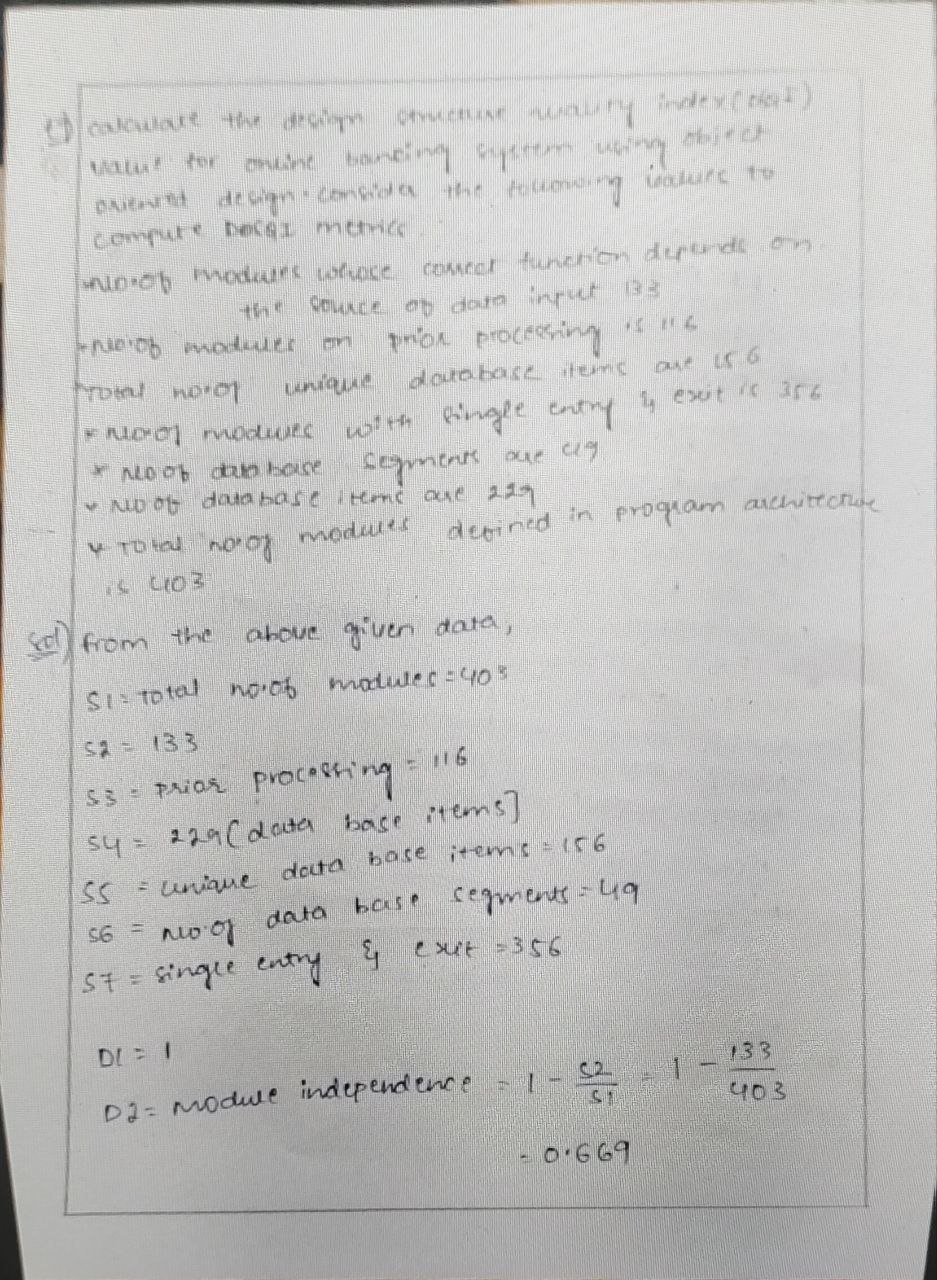 calculate the design structure quality index (DSQI)
value for online banking system using object
orient design. consider the following values to
compute metrics
no.of modules whose correct function depends on
the source of data input 133
* no.of modules on prior processing is 116
Total no.of unique database items are 156
* no.of modules with single entry & exit is 356
* no of data base segments are 49
* no of database items are 229
* Total no.of modules defined in program architecture
is 403
sol) from the above given data,
S1 = total no.of modules = 403
S2 = 133
S3 = prior processing = 116
S4 = 229 [data base items]
S5 = unique data base items = 156
S6 = no.of data base segments = 49
S7 = single entry & exit = 356
D1 = 1
D2 = module independence = 1 - S2/S1 = 1 - 133/403
= 0.669